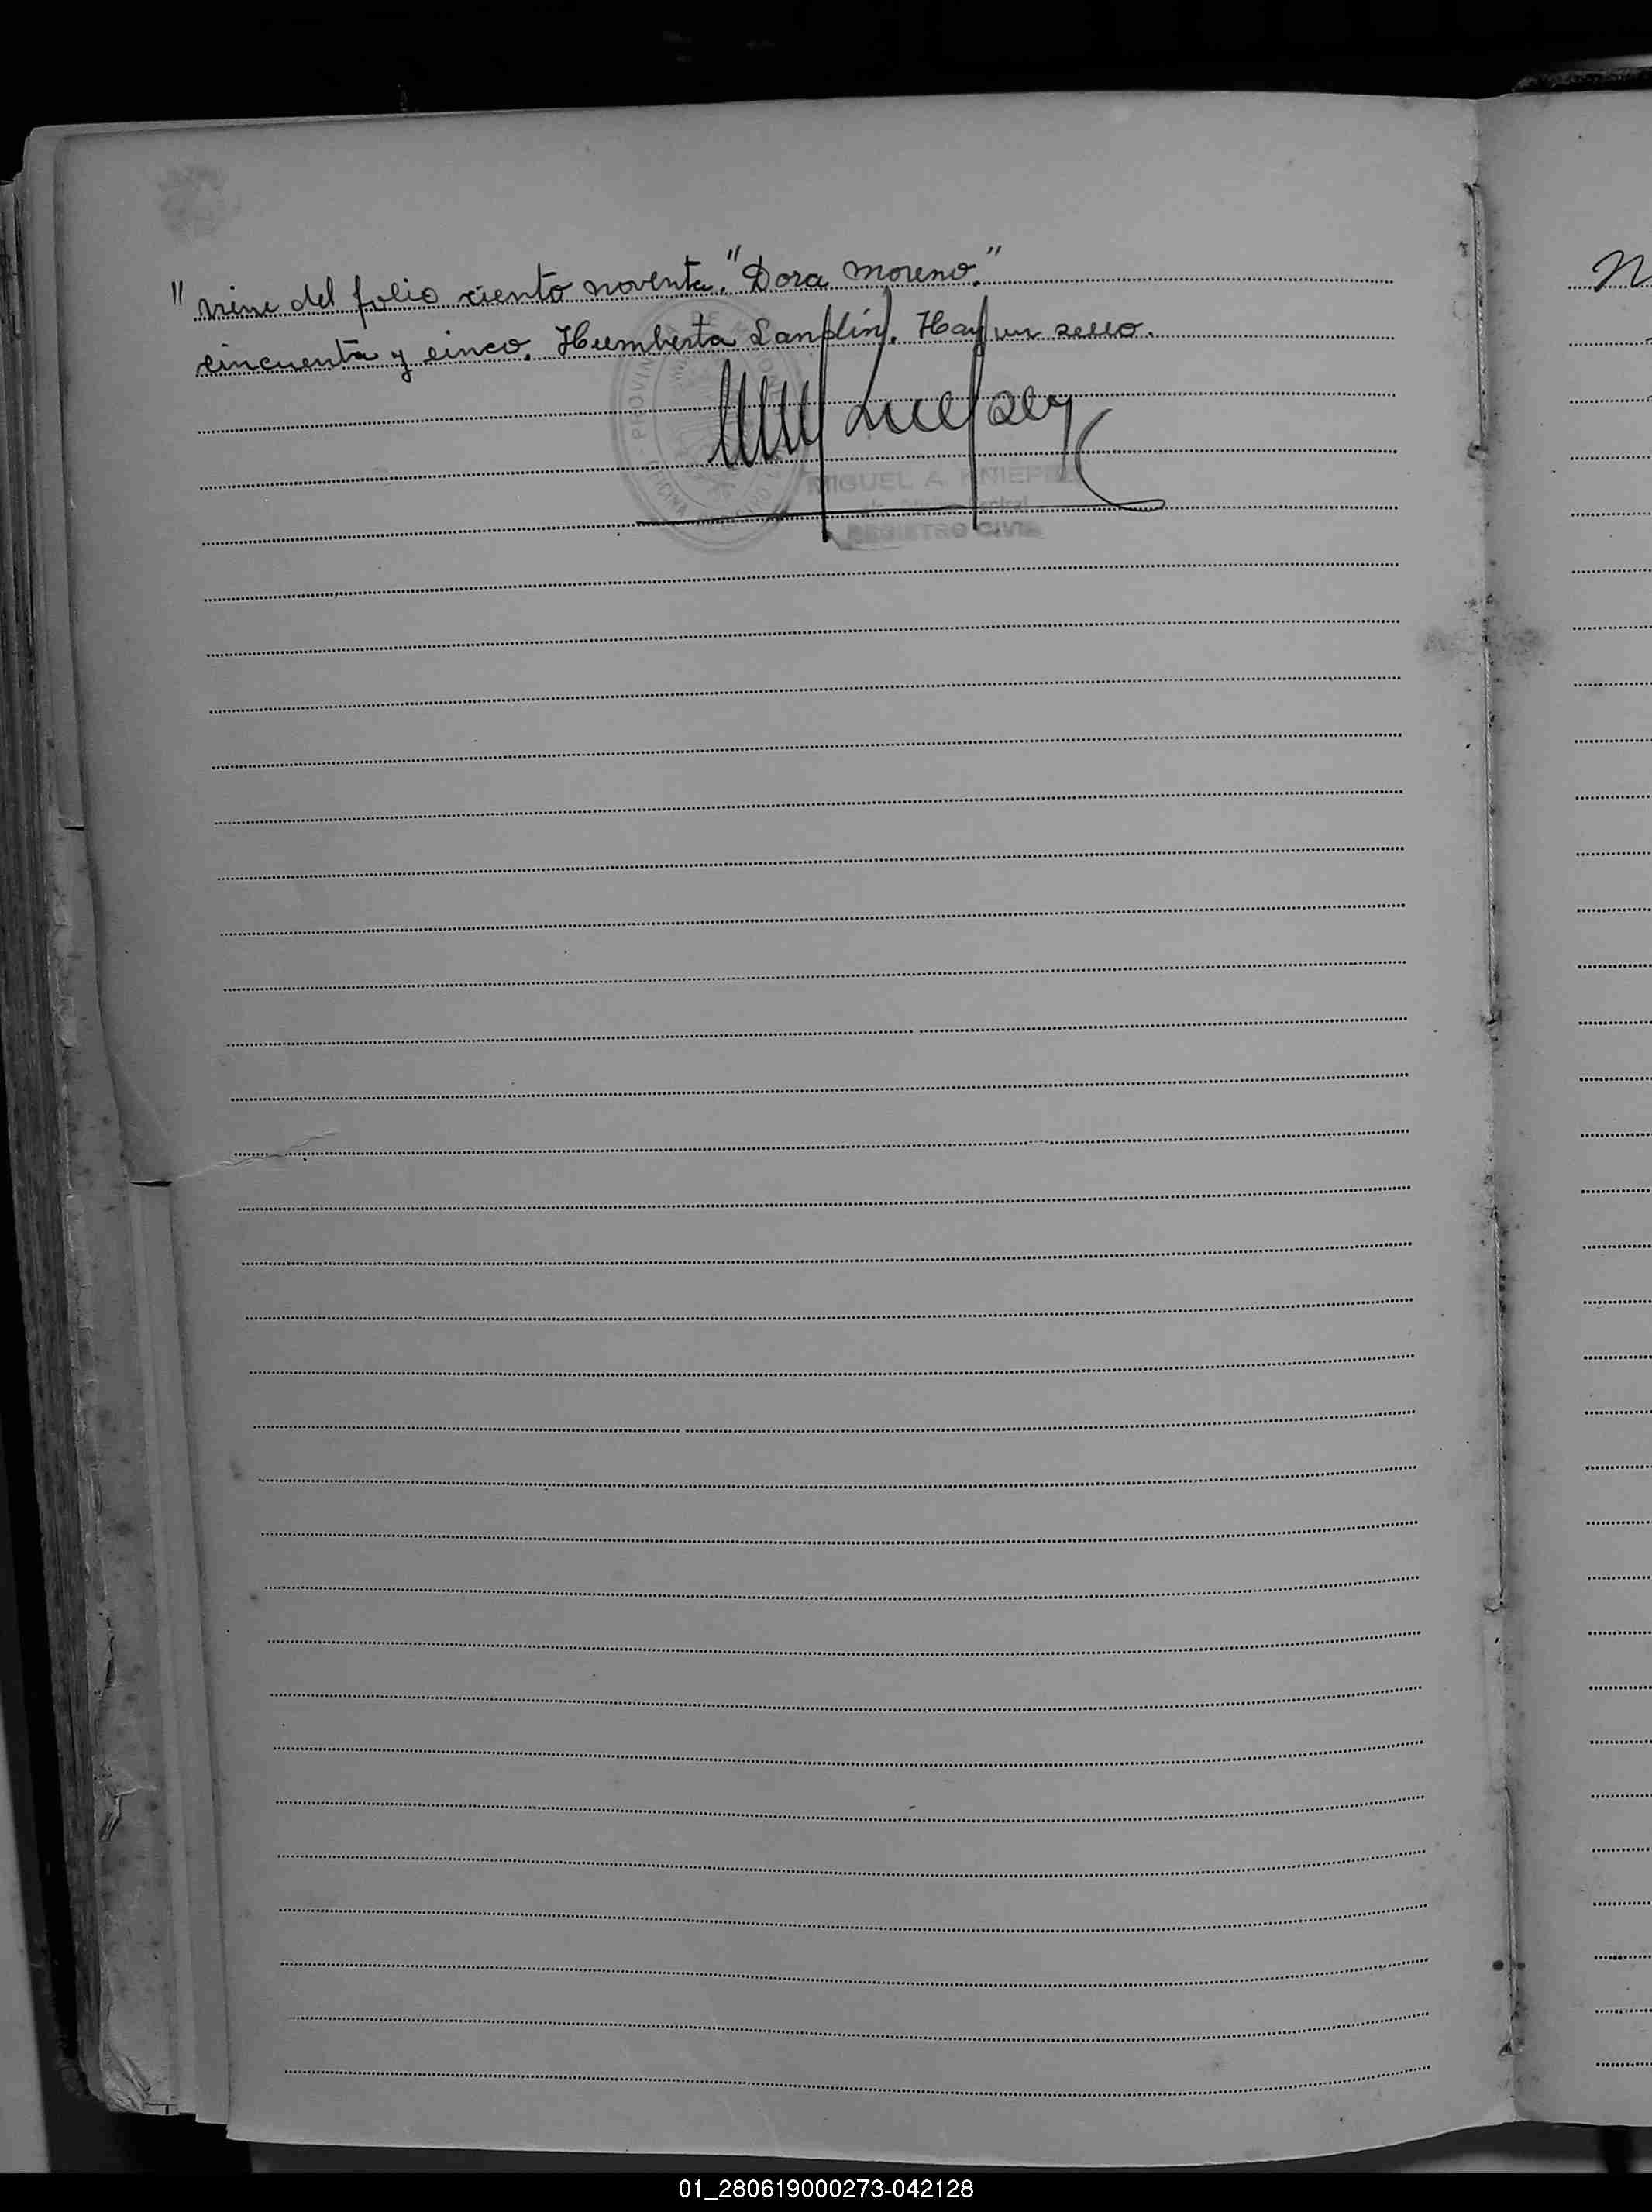 "viene del folio ciento noventa. "Dora Moreno."
cincuenta y cinco. Humberta Landín. Hay un sello.
MIGUEL A. KNIEPE
Oficina Central
REGISTRO CIVIL
01_280619000273-042128